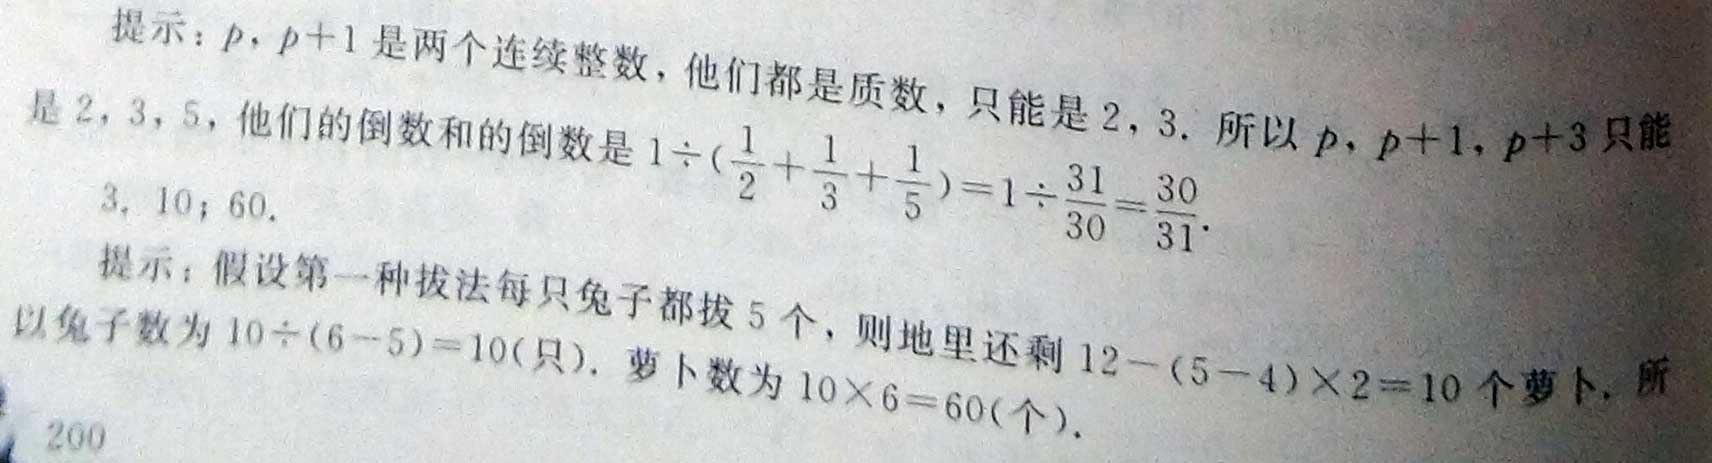 提示：p，p+1 是两个连续整数，他们都是质数，只能是 2，3. 所以 p，p+1，p+3 只能
是 2，3，5，他们的倒数和的倒数是 1÷(1/2+1/3+1/5)=1÷31/30=30/31.
3. 10；60.
提示：假设第一种拔法每只兔子都拔 5 个，则地里还剩 12-(5-4)×2=10 个萝卜. 所
以兔子数为 10÷(6-5)=10(只). 萝卜数为 10×6=60(个).
200